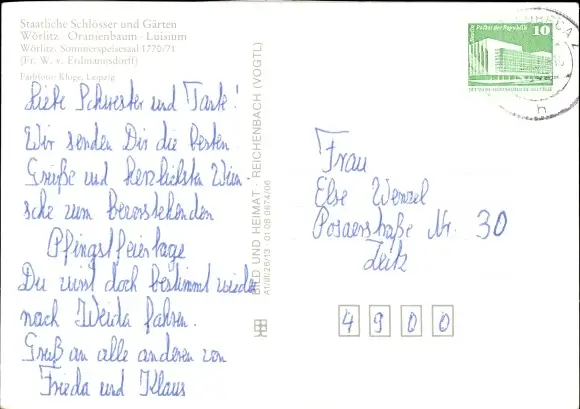 Staatliche Schlösser und Gärten
Wörlitz · Oranienbaum · Luisium
Wörlitz. Sommerspeisesaal 1770/71
(Fr. W. v. Erdmannsdorff)
Farbfoto: Kluge, Leipzig
Liebe Schwester und Tante!
Wir senden Dir die besten
Grüße und herzlichsten Wün-
sche zum bevorstehenden
Pfingstfeiertage
Du wirst doch bestimmt wieder
nach Weida fahren.
Gruß an alle anderen von
Frieda und Klaus
BILD UND HEIMAT · REICHENBACH (VOGTL)
A1/III/26/13 · 01 08 0674/06
Berlin, Palast der Republik
10
h
Frau
Else Wenzel
Posaerstraße Nr. 30
Zeitz
4900